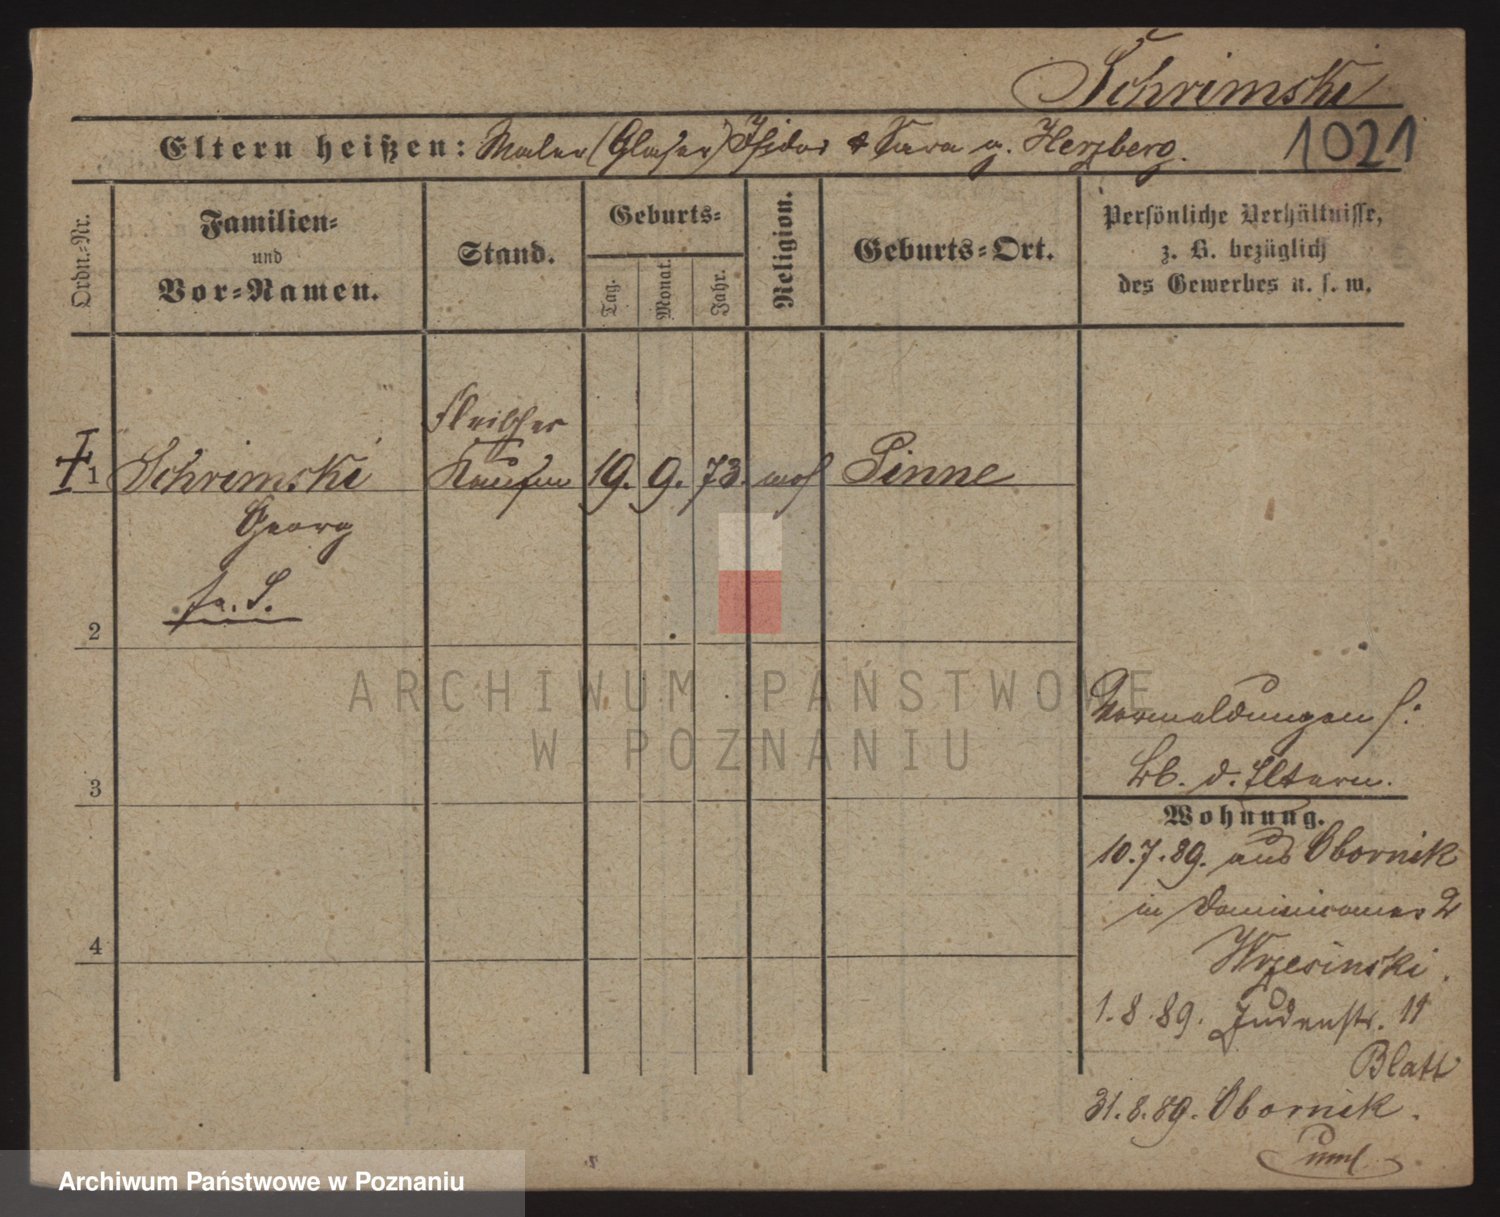 Schrimski
Eltern heißen: Maler (Glaser) Isidor & Sara g. Herzberg.
1021
Ordn.-Nr.
Familien-
und
Vor-Namen.
Stand.
Geburts-
Tag.
Monat.
Jahr.
Religion.
Geburts-Ort.
Persönliche Verhältnisse,
z. B. bezüglich
des Gewerbes u. s. w.
Fleischer
1 Schrimski Kaufm 19. 9. 73. mos Pinne
Georg
fr. S.
2
ARCHIWUM PAŃSTWOWE
W POZNANIU
Vermeldungen s:
Kb. d. Eltern.
3
Wohnung.
10.7.89. aus Obornik
in Dominicaner 2
Wrzesinski.
4
1.8.89. Judenstr. 11
Blatt
31.8.89. Obornik.
Archiwum Państwowe w Poznaniu